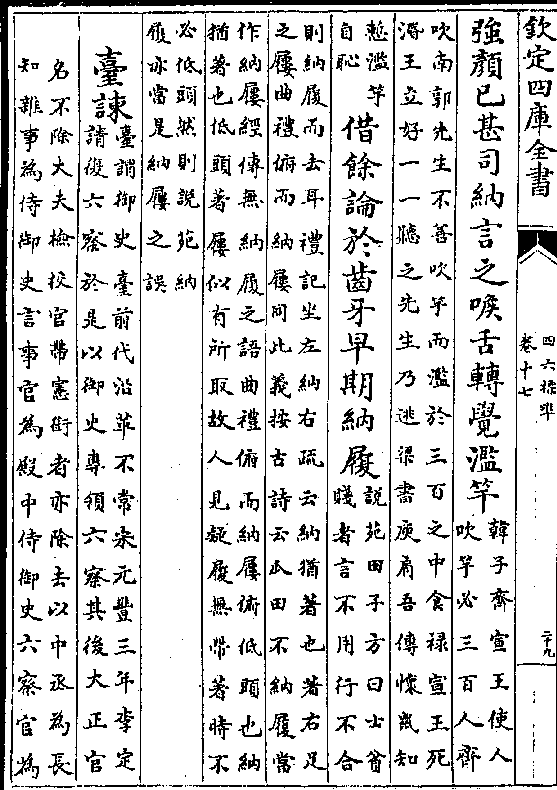 欽定四庫全書
四六標準
卷十七
二十九
強顏已甚司納言之喉舌轉覺濫竽韓子齊宣王使人
吹竽必三百人齊
吹南郭先生不善吹竽而濫於三百之中食祿宣王死
湣王立好一一聽之先生乃逃梁書庾肩吾傳懷鼠知
慙濫竽
自恥
借餘論於齒牙早期納履說苑田子方曰士貧
賤者言不用行不合
則納履而去耳禮記坐左納右疏云納猶著也著右足
之屨曲禮俯而納屨問此義按古詩云瓜田不納履當
作納屨經傳無納履之語曲禮俯而納屨俯低頭也納
猶著也低頭著屨似有所取故人見疑履無帶著時不
必低頭然則說苑納
履亦當是納屨之誤
臺諫臺謂御史臺前代沿革不常宋元豐三年李定
請復六察於是以御史專領六察其後大正官
名不除大夫檢校官帶憲銜者亦除去以中丞為長
知雜事為侍御史言事官為殿中侍御史六察官為